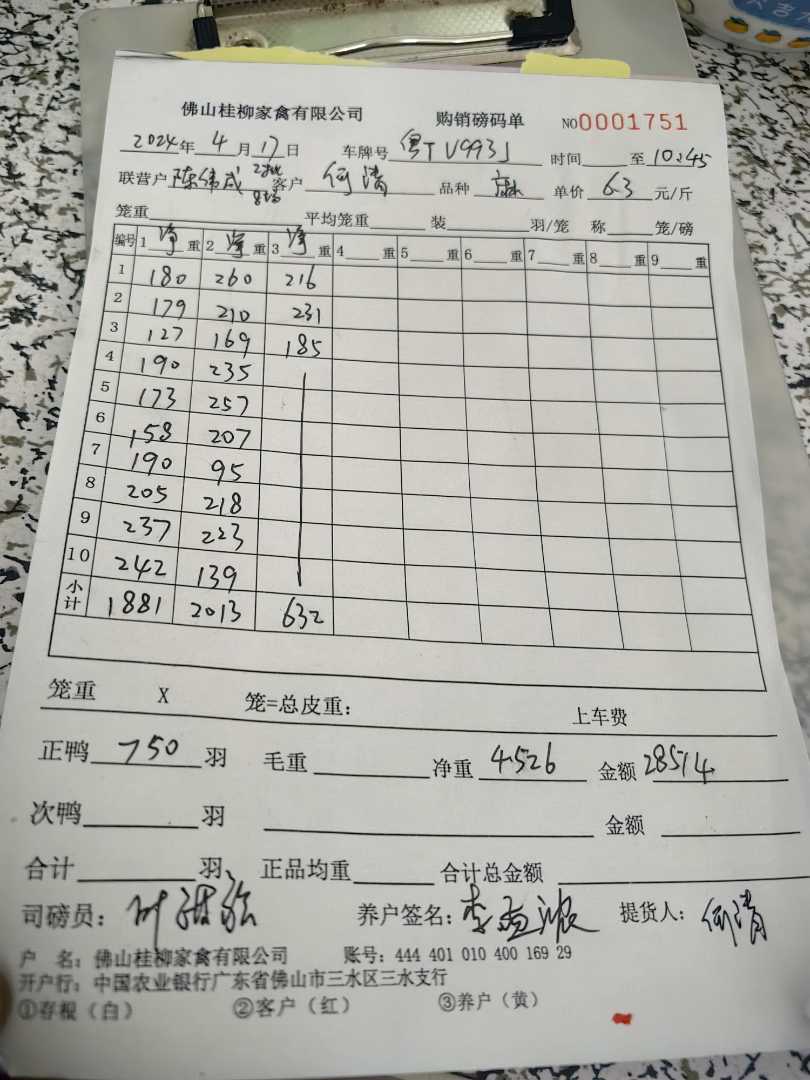 佛山桂柳家禽有限公司 购销磅码单 NO0001751
2024年 4 月 17 日 车牌号 粤TV993J 时间 至 10:45
联营户 陈伟成 客户 何清 品种 单价 6.3 元/斤
笼重 平均笼重 装 羽/笼 称 笼/磅
编号 1 净 重 2 净 重 3 净 重 4 重 5 重 6 重 7 重 8 重 9 重
1 180 260 216
2 179 210 231
3 127 169 185
4 190 235
5 173 257
6 158 207
7 190 95
8 205 218
9 237 223
10 242 139
小计 1881 2013 632
笼重 X 笼=总皮重: 上车费
正鸭 750 羽 毛重 净重 4526 金额 28514
次鸭 羽 金额
合计 羽 正品均重 合计总金额
司磅员: 养户签名: 提货人: 何清
户 名: 佛山桂柳家禽有限公司 账号: 444 401 010 400 169 29
开户行: 中国农业银行广东省佛山市三水区三水支行
①存根（白） ②客户（红） ③养户（黄）